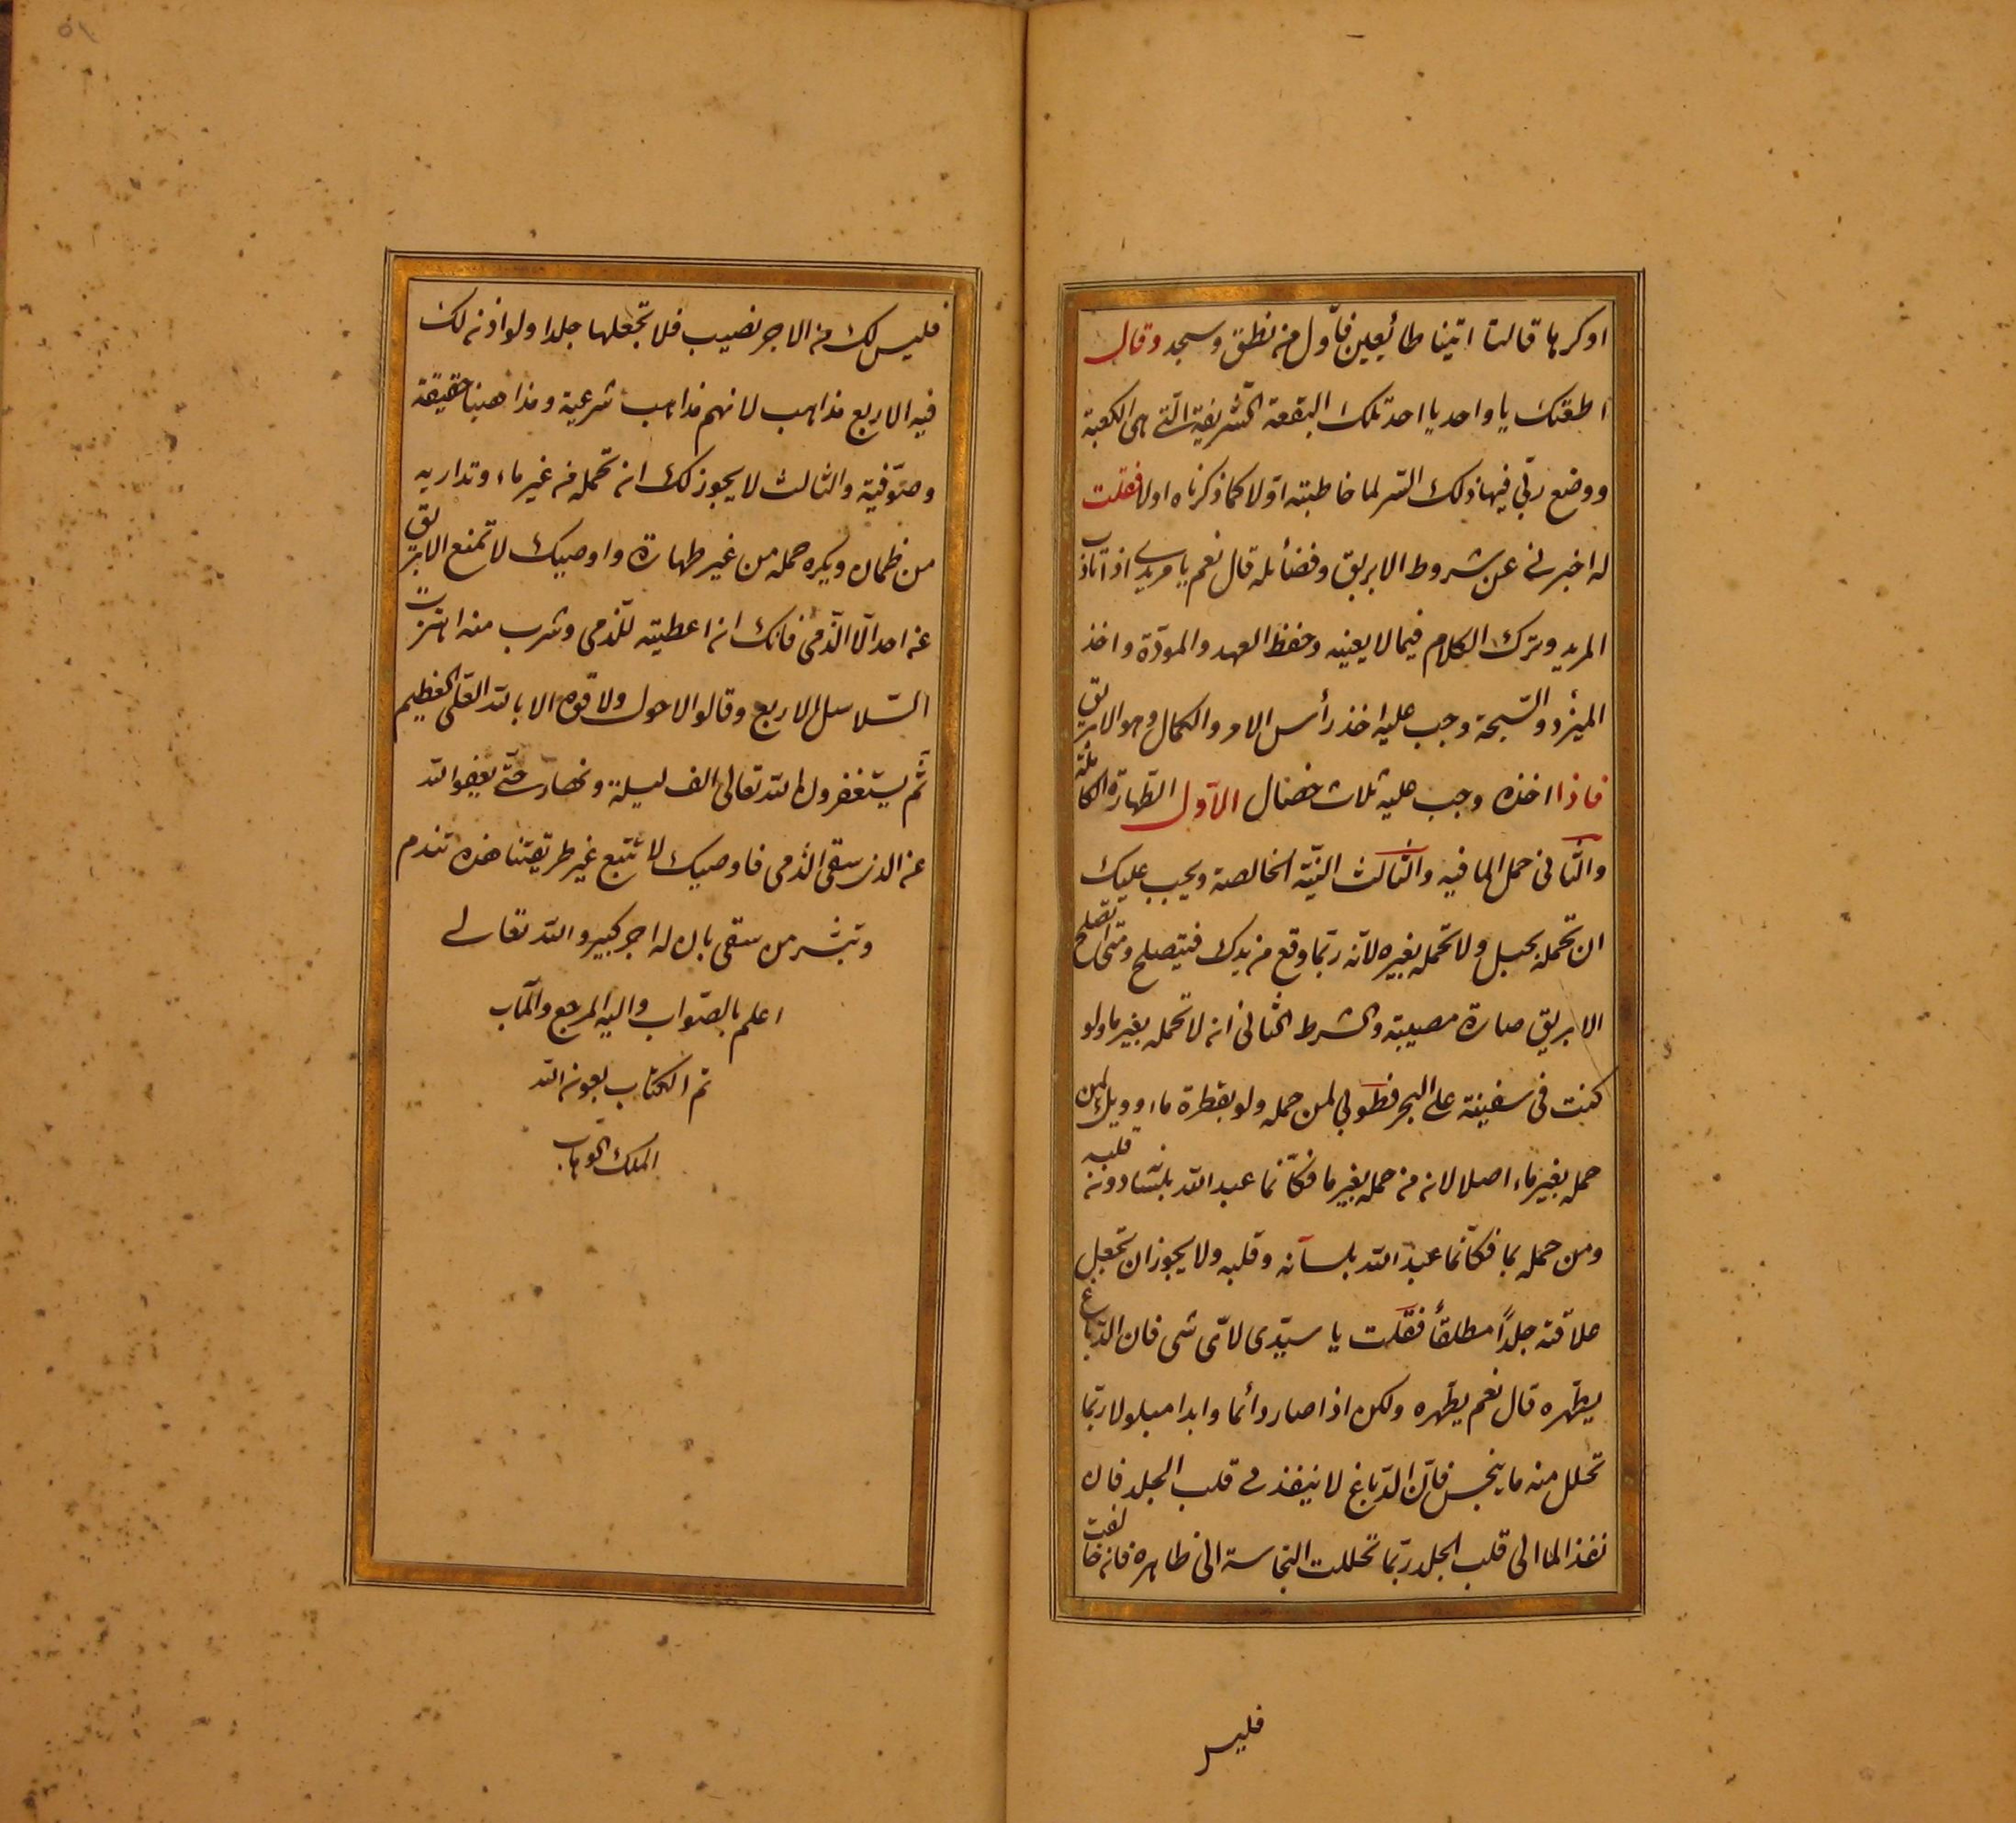 اوكرها قالتا اتينا طائعين فاّول من نطق وسجد وقال
اطعتك يا واحد يا احد تلك البقعة الشريفة الّتى هى الكعبة
ووضع ربّى فيها ذلك السّر لما خاطبته اوّلا كما ذكرناه اولا فقلت
له اخبرنى عن شروط الابريق وفضائله قال نعم يا مريدى اذا تاب
المريد وترك الكلام فيما لا يعنيه وحفظ العهد والمودّة واخذ
الميزد والسّبحة وجب عليه اخذ رأس الامر والكمال وهو الابريق
فاذا اخذه وجب عليه ثلاث خصال الاّول الطّهارة الكاملة
والثّانى حمل الما فيه والثّالث النيّة الخالصة ويجب عليك
ان تحمله بحبل ولا تحمله بغيره لانّه ربّما وقع من يدك فيتصلح ومتى اتصلح
الابريق صارة مصيبة والشرط الثانى انه لا تحمله بغير ما ولو
كنت فى سفينة على البحر فطوبى لمن حمله ولو بقطرة ماء وويل لمن
حمله بغير ماء اصلا لانه من حمله بغير ما فكاّنما عبد الله بلسانه دون قلبه
ومن حمله بما فكاّنما عبد الله بلسانه وقلبه ولا يجوز ان تجعل
علاقته جلدًا مطلقًا فقلت يا سيّدى لاّى شى فان الدّباغ
يطّهره قال نعم يطّهره ولكن اذا صار دائما وابدا مبلولا ربّما
تحلل منه ما ينجس فاّن الدّباغ لا ينفذ فى قلب الجلد فان
نفذ الما الى قلب الجلد ربّما تحللت النجاسة الى ظاهره فان خالفت
فليس
فليس لك من الاجر نصيب فلا تجعلها جلدا ولو اذنه لك
فيه الاربع مذاهب لانهم مذاهب شرعية ومذاهبنا حقيقة
وصوّفية والثالث لا يجوز لك ان تحمله من غير ماء وتداريه
من ظمان ويكره حمله من غير طهارة واوصيك لا تمنع الابريق
عن احد الّا الذّمى فانك ان اعطيته للّذمى وشرب منه اهتزت
السّلاسل الاربع وقالوا لا حول ولا قوة الا بالله العّلى العظيم
ثّم يستغفرون الله تعالى الف ليلة ونهار حتّى يعفو الله
عن الذى سقى الذّمى فاوصيك لا تتبع غير طريقتنا هذه تندم
وتبشر من سقى بان له اجر كبير والله تعالى
اعلم بالصّواب واليه المرجع والمآب
تم الكتاب بعون الله
الملك الوهّاب